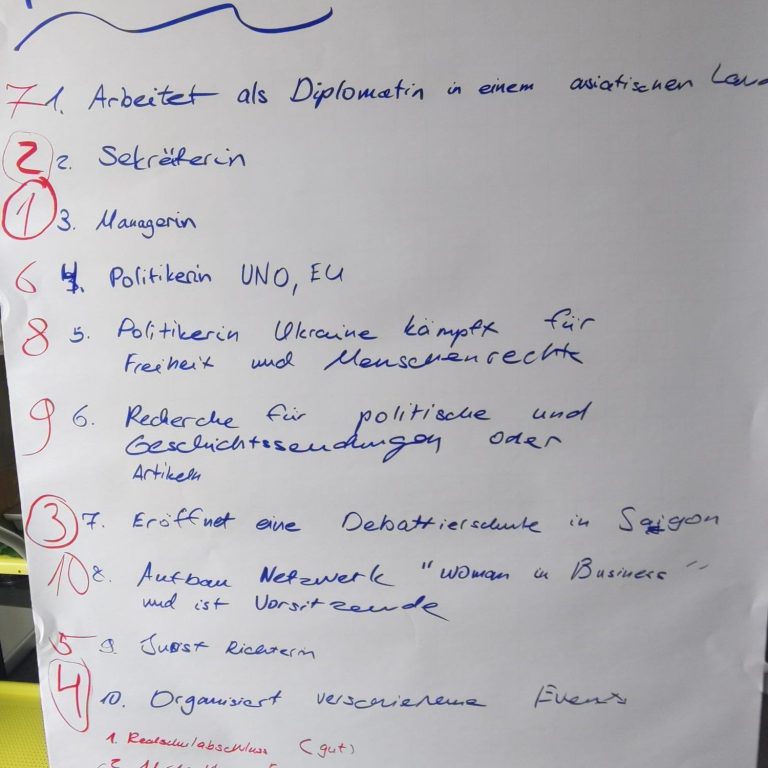 7 1. Arbeitet als Diplomatin in einem asiatischen Land
2 2. Sekräterin
1 3. Managerin
6 4. Politikerin UNO, EU
8 5. Politikerin Ukraine kämpft für
Freiheit und Menschenrechte
9 6. Recherche für politische und
Geschichtssendungen oder
Artikeln
3 7. Eröffnet eine Debattierschule in Saigon
10 8. Aufbau Netzwerk "woman in Business"
und ist Vorsitzende
5 9 Jurist Richterin
4 10. Organisiert verschiedene Events
1. Realschulabschluss (gut)